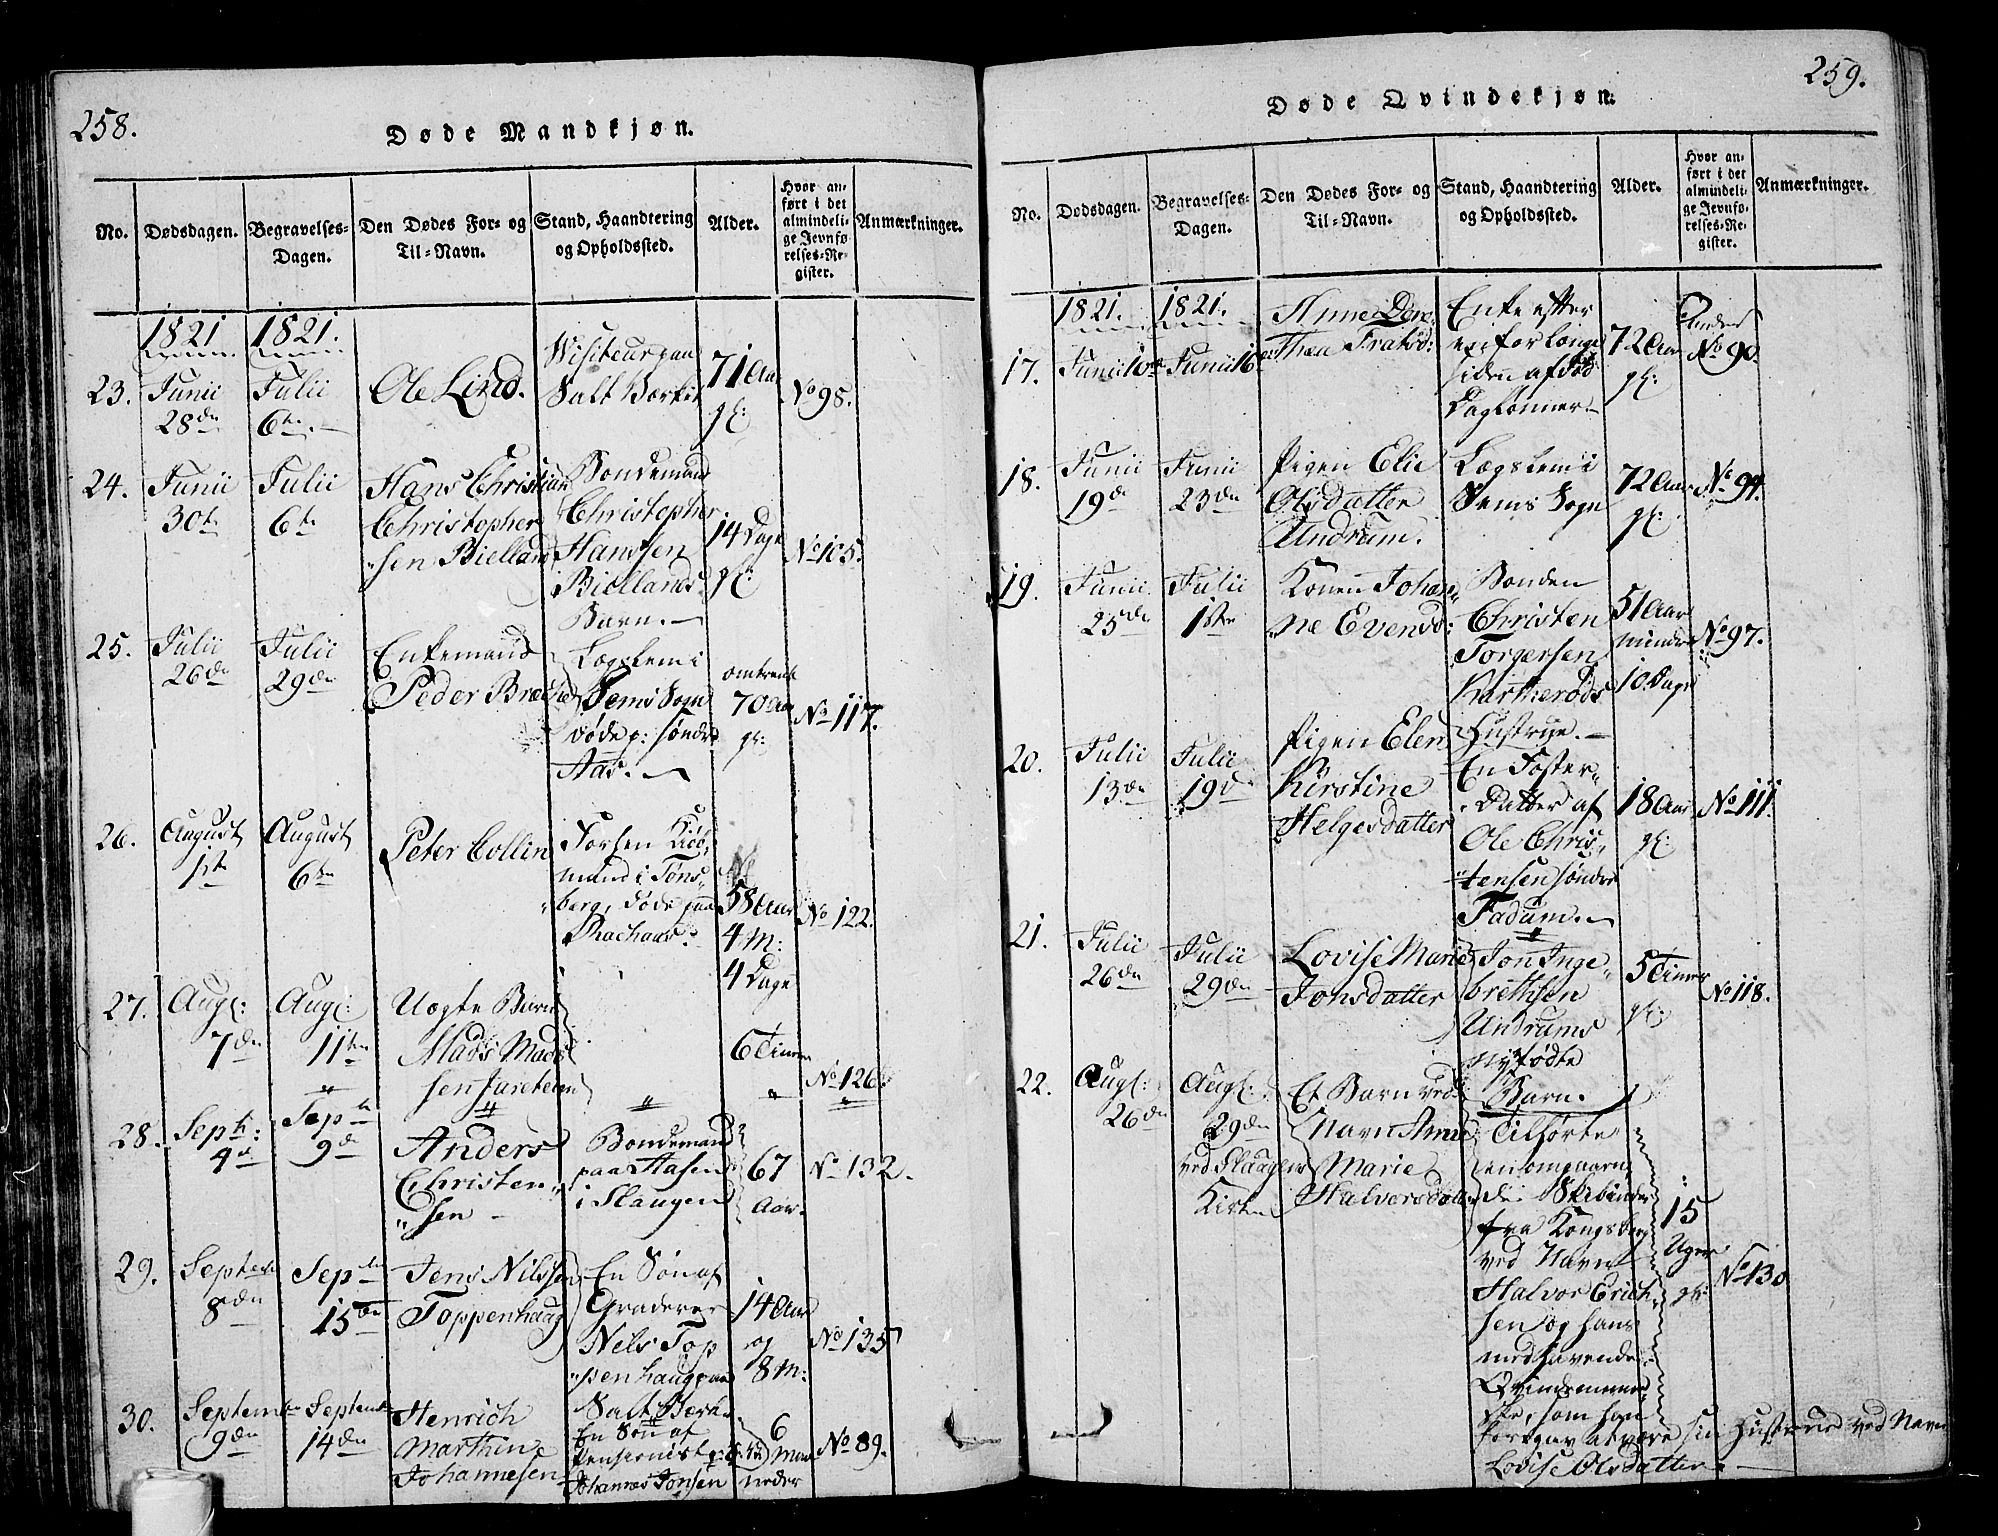 258.
Døde Mandkjøn.
No.
Dødsdagen.
Begravelses-
Dagen.
Den Dødes For- og
Til-Navn.
Stand, Haandtering
og Opholdssted.
Alder.
Hvor an-
ført i det
almindeli-
ge Jevnfø-
relses-Re-
gister.
Anmærkninger.
1821 1821.
23.
Junii
28de
Julii
6te.
Ole Lind.
Visiteur paa
Salt Værket
71 Aar
gl:
No 98.
24.
Junii
30te
Julii
6te
Hans Christian
Christopher
sen Bielland
Bondemand
Christopher
Hanssen
Biellands
Barn.
14 Dage
gl:
No 105.
25.
Julii
26de
Julii
29de
Enkemand
Peder
Lægslem i
Sems Sogn
døde p: søndre
Aas.
omtrent
70 Aar
gl:
No 117.
26.
August
1ste
August
6te
Peter Collin
Forhen Kiøb
mand i Tøns
berg, døde paa
58 Aar
4 M:
4 Dage
No 122.
27.
Augl:
7de
Augl:
11te
Uægte Barn
Mads Mads
sen
6 Timer
No 126.
28.
Septr:
4de
Septr
9de
Anders
Christen
sen
Bondemand
paa Aasen
i Slaugen
67
Aar.
No 132.
29.
Septembr
8de
Septbr
15de
Jens Nilssen
Toppenhaug
En Søn af
Graderer
Nels Top
penhaug paa
Salt Værket
14 Aar
og
8 M:
No 135
30.
September
9de
September
14de
Henrich
Marthin
Johannesen
En Søn af
Pensionist
Johannes Jonsen
6
Maa
neder
No 89.
259.
Døde Qvindekjøn.
No.
Dødsdagen.
Begravelses-
Dagen.
Den Dødes For- og
Til-Navn.
Stand, Haandtering
og Opholdssted.
Alder.
Hvor an-
ført i det
almindeli-
ge Jevnfø-
relses-Re-
gister.
Anmærkninger.
1821. 1821.
17.
Junii 10de
Junii 16
Anne Doro
thea
Enke efter
en for længe
siden afdød
Daglønner
72 Aar
gl:
No 90.
18.
Junii
19de
Junii
23de
Pigen Elie
Olsdatter
Undrum.
Lægslem i
Sems Sogn
72 Aar
gl:
No 94.
19.
Junii
25de
Julii
1ste
Konen Johan
ne Evensd:
Bonden
Christen
Torgersen
Hustrue.
51 Aar
mindre
10 Dage
No 97.
20.
Julii
13de
Julii
19de
Pigen Elen
Kirstine
Helgesdatter
En Foster
Datter af
Ole Chris
tensen søndre
Fadum.
18 Aar
gl:
No 111.
21.
Julii
26de
Julii
29de
Lovise Marie
Jonsdatter
Jon Inge
brethsen
Undrums
nyfødte
Barn.
5 Timer
gl:
No 118.
22.
Augl:
26de
Augl:
29de
ved Slaugens
Kirke
Et Barn ved
Navn Anne
Marie
Halversdatter
Tilhørte
en omgaaen
de
fra Kongsberg
ved Navn
Halvor Erich
sen og hans
medhavende
Qvindemenne
ske, som han
foregav at være sin Hustrue ved Navn
Lovise Olsdatter.
15
Uger
gl:
No 130